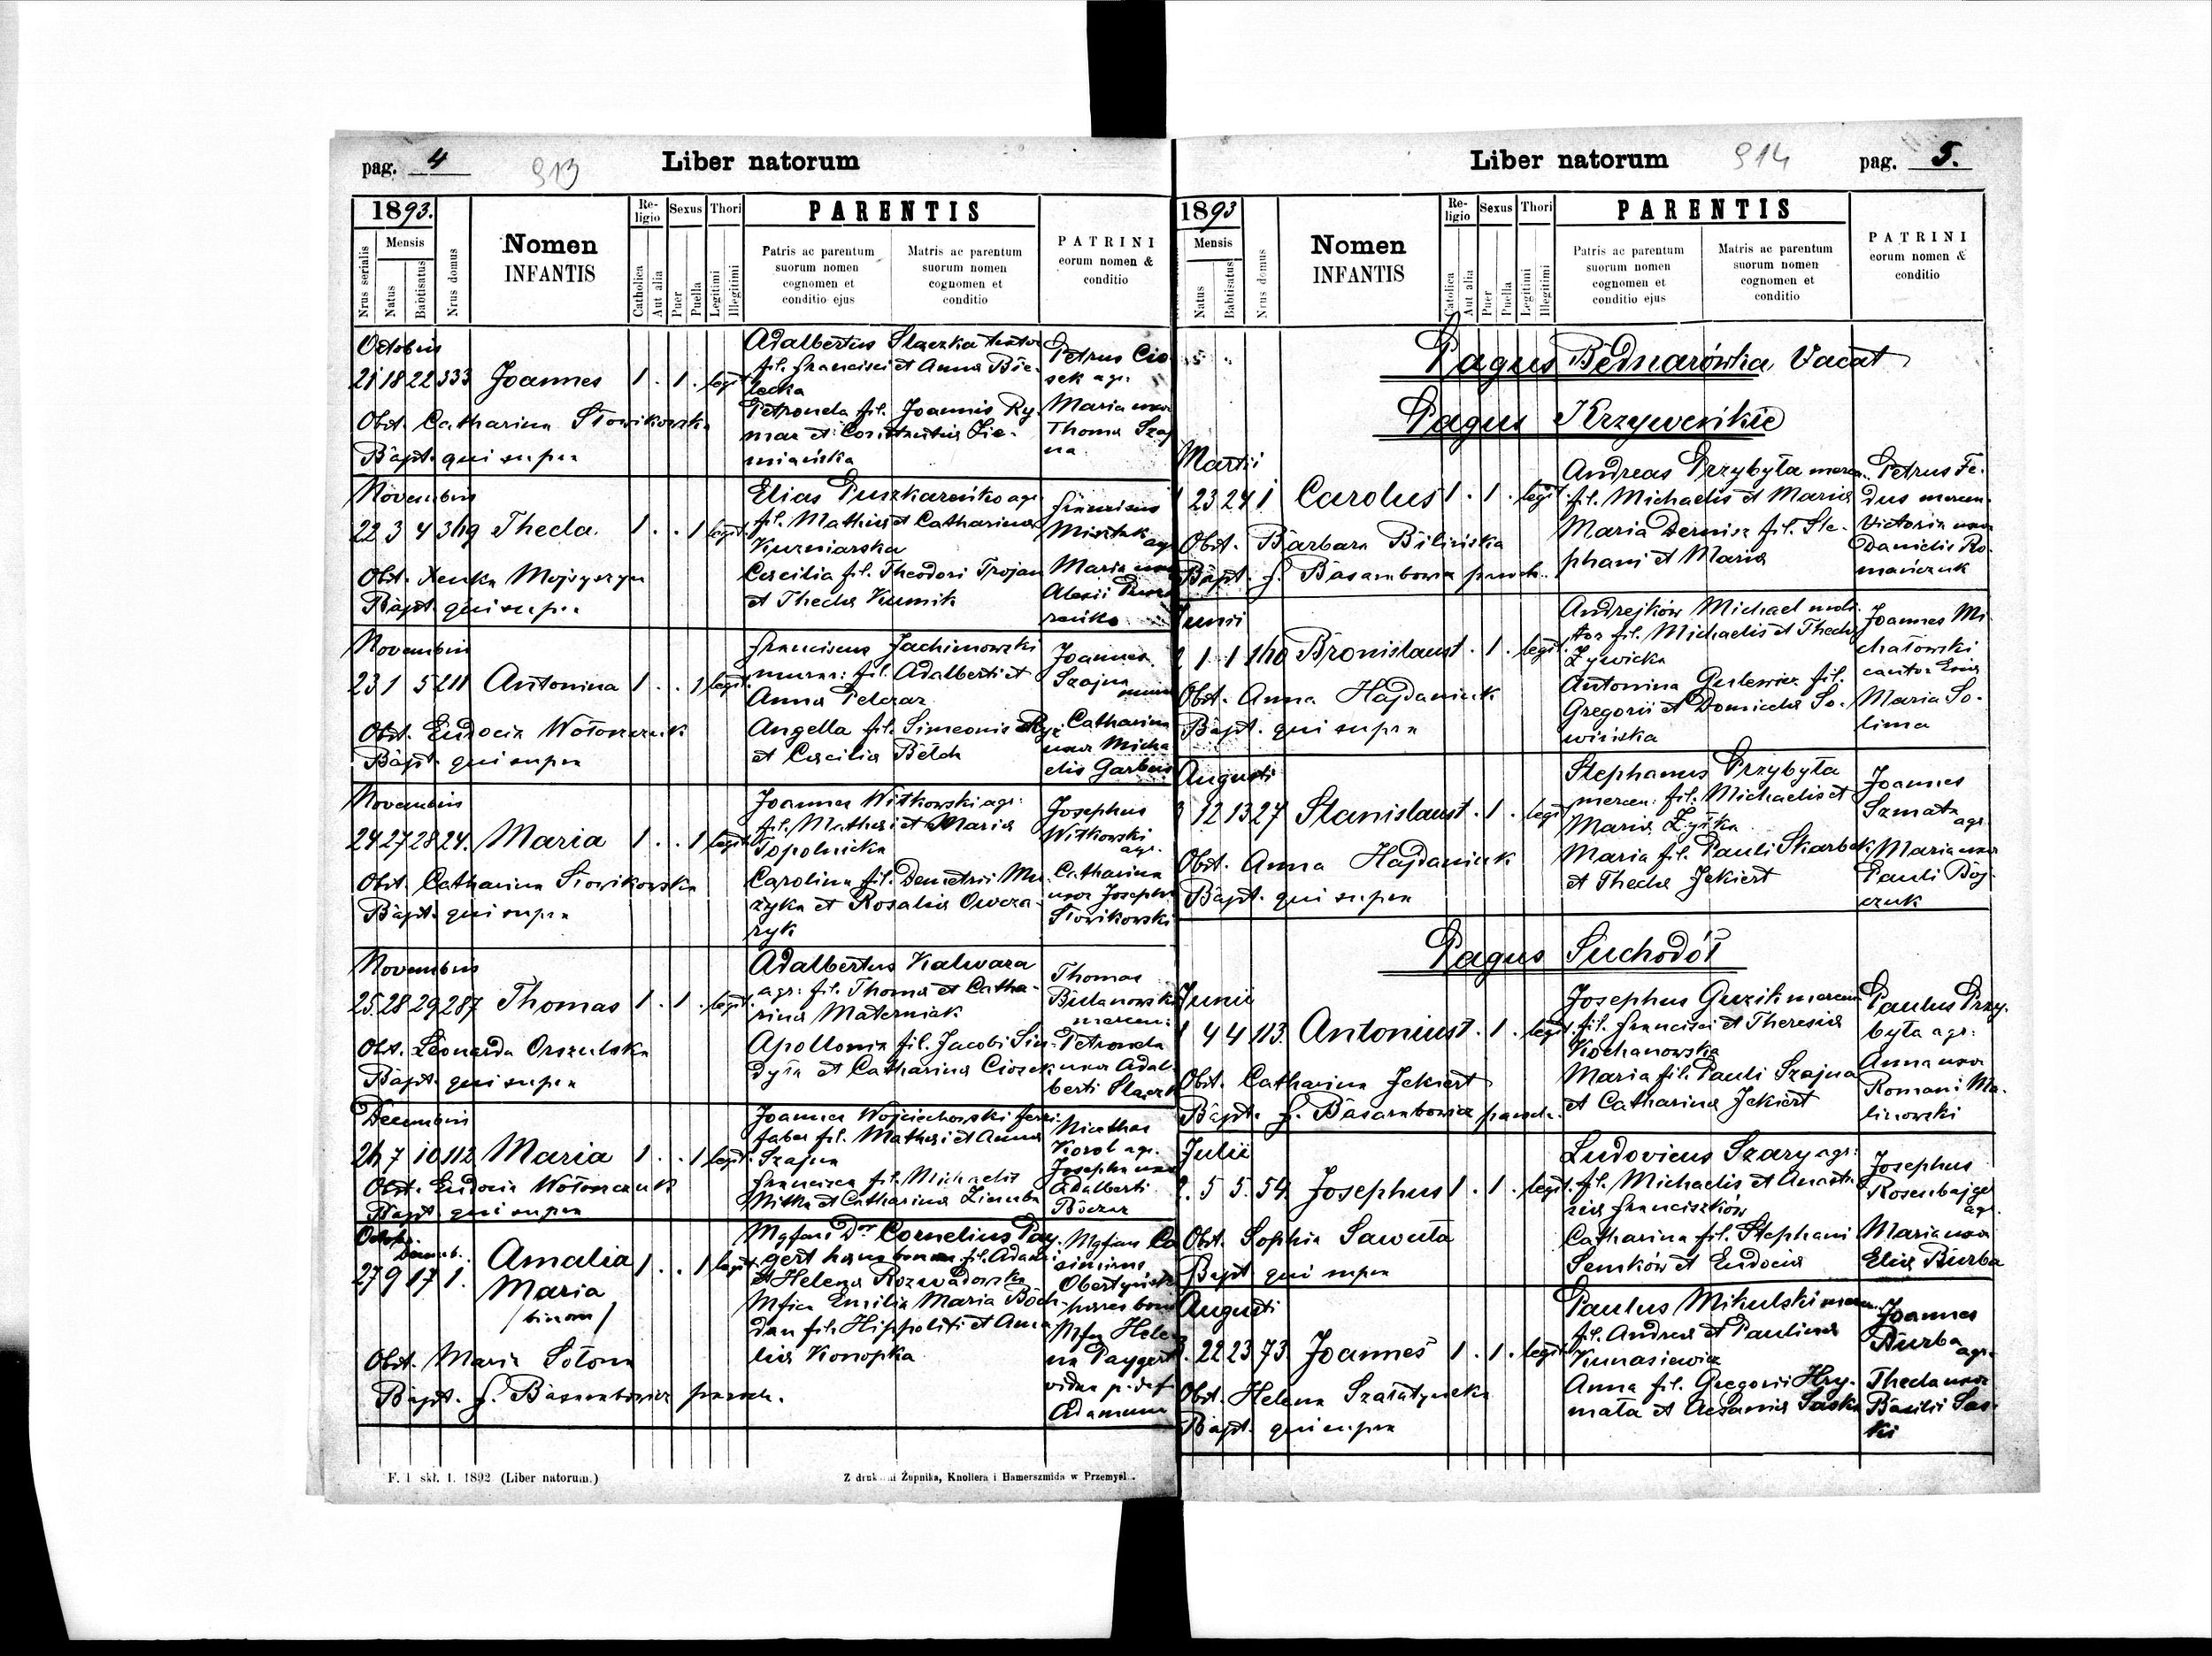 pag. 4
913
Liber natorum
1893.
Nrus serialis
Mensis
Natus
Babtisatus
Nrus domus
Nomen
INFANTIS
Religio
Catholica
Aut alia
Sexus
Puer
Puella
Thori
Legitimi
Illegitimi
PARENTIS
Patris ac parentum
suorum nomen
cognomen et
conditio ejus
Matris ac parentum
suorum nomen
cognomen et
conditio
PATRINI
eorum nomen &
conditio
Octobris
21 18 22 333 Joannes 1 . 1 . legit.
Obst. Catharina Słowikowska
Bapt. qui supra
Adalbertus Slaczka
fil. Francisci et Anna Bie-
lecka
Petronela fil. Joannis Ry-
mar et Constantia Zie-
miańska
Petrus Cio
sek agr.
Maria uxor
Thoma Szaj
na
Novembris
22 3 4 369 Thecla. 1 . . 1 legit.
Obst. Xenka Mojsyszyn
Bapt. qui supra
Elias Puszkareńko agr.
fil. Mathia et Catharina
Kuzniarska
Cæcilia fil. Theodori Trojan
et Thecla Kumik
Franciscus
Misztak
agr
Maria uxor
Alexii
Novembris
23 1 5 211 Antonina 1 . . 1 legit.
Obst. Eudocia Wołoszczuk
Bapt. qui supra
Franciscus Jachimowski
murar: fil. Adalberti et
Anna Pelczar
Angella fil. Simeonis
et Cæcilia Bełch
Joannes
Szajna
Catharina
uxor Micha
elis Garbus
Novembris
24 27 28 24. Maria 1 . . 1 legit.
Obst. Catharina Słowikowska
Bapt. qui supra
Joannes Witkowski agr:
fil. Mathei et Maria
Topolnicka
Carolina fil. Demetrii Mu
zyka et Rosalia Owcza-
ryk
Josephus
Witkowski
agr.
Catharina
uxor Josephi
Słowikowski
Novembris
25 28 29 287 Thomas 1 . 1 . legit.
Obst. Leonarda Orszulska
Bapt. qui supra
Adalbertus Kalwara
agr: fil. Thoma et Catha-
rina Materniak
Apollonia fil. Jacobi Sin-
dyła et Catharina Ciosek
Thomas
Bulanowski
mercen:
Petronela
uxor Adal-
berti Slaczk
Decembris
26 7 10 112 Maria 1 . . 1 legit.
Obst. Eudocia Wołoszczuk
Bapt. qui supra
Joannes Wojciechowski ferri-
faber fil. Mathei et Anna
Szajna
Francisca fil. Michaelis
Mitka et Catharina Ziemba
Korol agr.
Josepha uxor
Adalberti
Decemb.
27 9 17 1. Amalia 1 . . 1 legit.
Maria
/binom/
Obst. Maria Sołoma
Bapt. f. Basarabowicz paroch.
Mgfani Dor Cornelius Pay-
gert hæres bonorum fil. Adami
et Helena Rozwadowska
Mfica Emilia Maria Boch-
dan fil. Hippoliti et Ama
lia Konopka
Mgfani Ca
simirus
Obertyński
hæres bon
Mfa Hele
na Paygert
vidua p. def
Adamum
F. 1 skł. 1. 1892 (Liber natorum.)
Z drukarni Żupnika, Knollera i Hamerszmida w Przemyśl..
Liber natorum
914
pag. 5.
1893
Mensis
Natus
Babtisatus
Nrus domus
Nomen
INFANTIS
Religio
Catolica
Aut alia
Sexus
Puer
Puella
Thori
Legitimi
Illegitimi
PARENTIS
Patris ac parentum
suorum nomen
cognomen et
conditio ejus
Matris ac parentum
suorum nomen
cognomen et
conditio
PATRINI
eorum nomen &
conditio
Pagus Bednarówka Vacat
Pagus Krzyweńkie
Martii
1 23 24 1 Carolus 1 . 1 . legit.
Obst. Barbara Bilińska
Bapt. f. Basarabowicz paroch.
Andreas Przybyła mercen.
fil. Michaelis et Maria
Maria Dernisz fil. Ste-
phani et Maria
Petrus Fe-
dus mercen.
Victoria uxor
Danielis Ro-
mańczuk
Junii
2 1 1 140 Bronislaus 1 . 1 . legit.
Obst. Anna Hajdaniuk
Bapt. qui supra
Andrejków Michael moli-
tor fil. Michaelis et Thecla
Zywicka
Antonina Gerlewicz fil.
Gregorii et Domicela So-
wińska
Joannes Mi
chałowski
cantor Eccl
Maria So-
lima
Augusti
3 12 13 27 Stanislaus 1 . 1 . legit.
Obst. Anna Hajdaniuk
Bapt. qui supra
Stephanus Przybyła
mercen: fil. Michaelis et
Maria Zyłka
Maria fil. Pauli Skarbek
et Thecla Jekiert
Joannes
Szmata
agr.
Maria uxor
Pauli Boj-
czuk
Pagus Suchodół
Junii
1 4 4 113. Antonius 1 . 1 . legit.
Obst. Catharina Jekiert
Bapt. f. Basarabowicz paroch.
Josephus Guzik mercen
fil. Francisci et Theresia
Kochanowska
Maria fil. Pauli Szajna
et Catharina Jekiert
Paulus Przy-
była agr:
Anna uxor
Romani Ma-
linowski
Julii
2. 5 5 54 Josephus 1 . 1 . legit.
Obst. Sophia Sawuła
Bapt qui supra
Ludovicus Szary agr:
fil. Michaelis et Anasta
sia Franciszków
Catharina fil. Stephani
Semków et Eudocia
Josephus
Rosenbajger
agr.
Maria uxor
Elia Burba
Augusti
3. 22 23 73. Joannes 1 . 1 . legit.
Obst. Helena Szałatyńska
Bapt. qui supra
Paulus Mikulski mercen.
fil. Andrea et Paulina
Kunasiewicz
Anna fil. Gregorii Hry-
mała et Axania Saska
Joannes
Burba
agr.
Thecla uxor
Basilii Sas-
ki